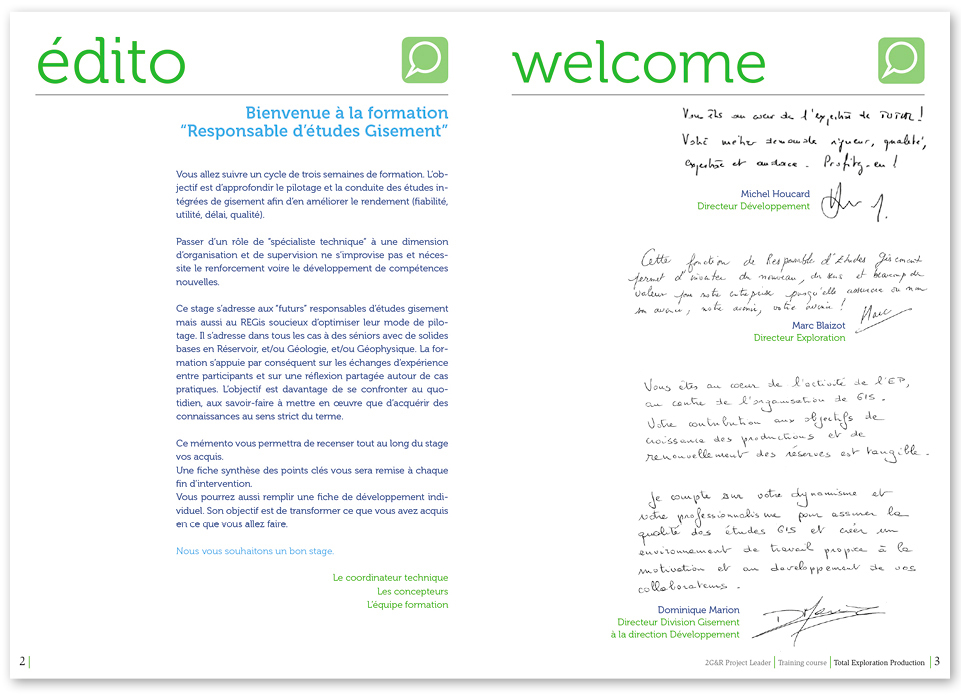 édito
Bienvenue à la formation
“Responsable d’études Gisement”
Vous allez suivre un cycle de trois semaines de formation. L’ob-
jectif est d’approfondir le pilotage et la conduite des études in-
tégrées de gisement afin d’en améliorer le rendement (fiabilité,
utilité, délai, qualité).
Passer d’un rôle de “spécialiste technique” à une dimension
d’organisation et de supervision ne s’improvise pas et néces-
site le renforcement voire le développement de compétences
nouvelles.
Ce stage s’adresse aux “futurs” responsables d’études gisement
mais aussi au REGis soucieux d’optimiser leur mode de pilo-
tage. Il s’adresse dans tous les cas à des séniors avec de solides
bases en Réservoir, et/ou Géologie, et/ou Géophysique. La for-
mation s’appuie par conséquent sur les échanges d’expérience
entre participants et sur une réflexion partagée autour de cas
pratiques. L’objectif est davantage de se confronter au quo-
tidien, aux savoir-faire à mettre en œuvre que d’acquérir des
connaissances au sens strict du terme.
Ce mémento vous permettra de recenser tout au long du stage
vos acquis.
Une fiche synthèse des points clés vous sera remise à chaque
fin d’intervention.
Vous pourrez aussi remplir une fiche de développement indi-
viduel. Son objectif est de transformer ce que vous avez acquis
en ce que vous allez faire.
Nous vous souhaitons un bon stage.
Le coordinateur technique
Les concepteurs
L’équipe formation
2
welcome
Vous êtes au cœur de l'expertise de TOTAL !
Votre métier demande rigueur, qualité,
expertise et audace. Profitez-en !
Michel Houcard
Directeur Développement
Cette fonction de Responsable d'Etudes Gisement
permet d'inventer du nouveau, du sens et beaucoup de
valeur pour notre entreprise puisqu'elle assurera ou non
son avenir, notre avenir, votre avenir !
Marc
Marc Blaizot
Directeur Exploration
Vous êtes au cœur de l'activité de l'EP,
au centre de l'organisation de GIS.
Votre contribution aux objectifs de
croissance des productions et de
renouvellement des réserves est tangible.
Je compte sur votre dynamisme et
votre professionnalisme pour assurer la
qualité des études GIS et créer un
environnement de travail propice à la
motivation et au développement de vos
collaborateurs.
Dominique Marion
Directeur Division Gisement
à la direction Développement
2G&R Project Leader | Training course | Total Exploration Production | 3